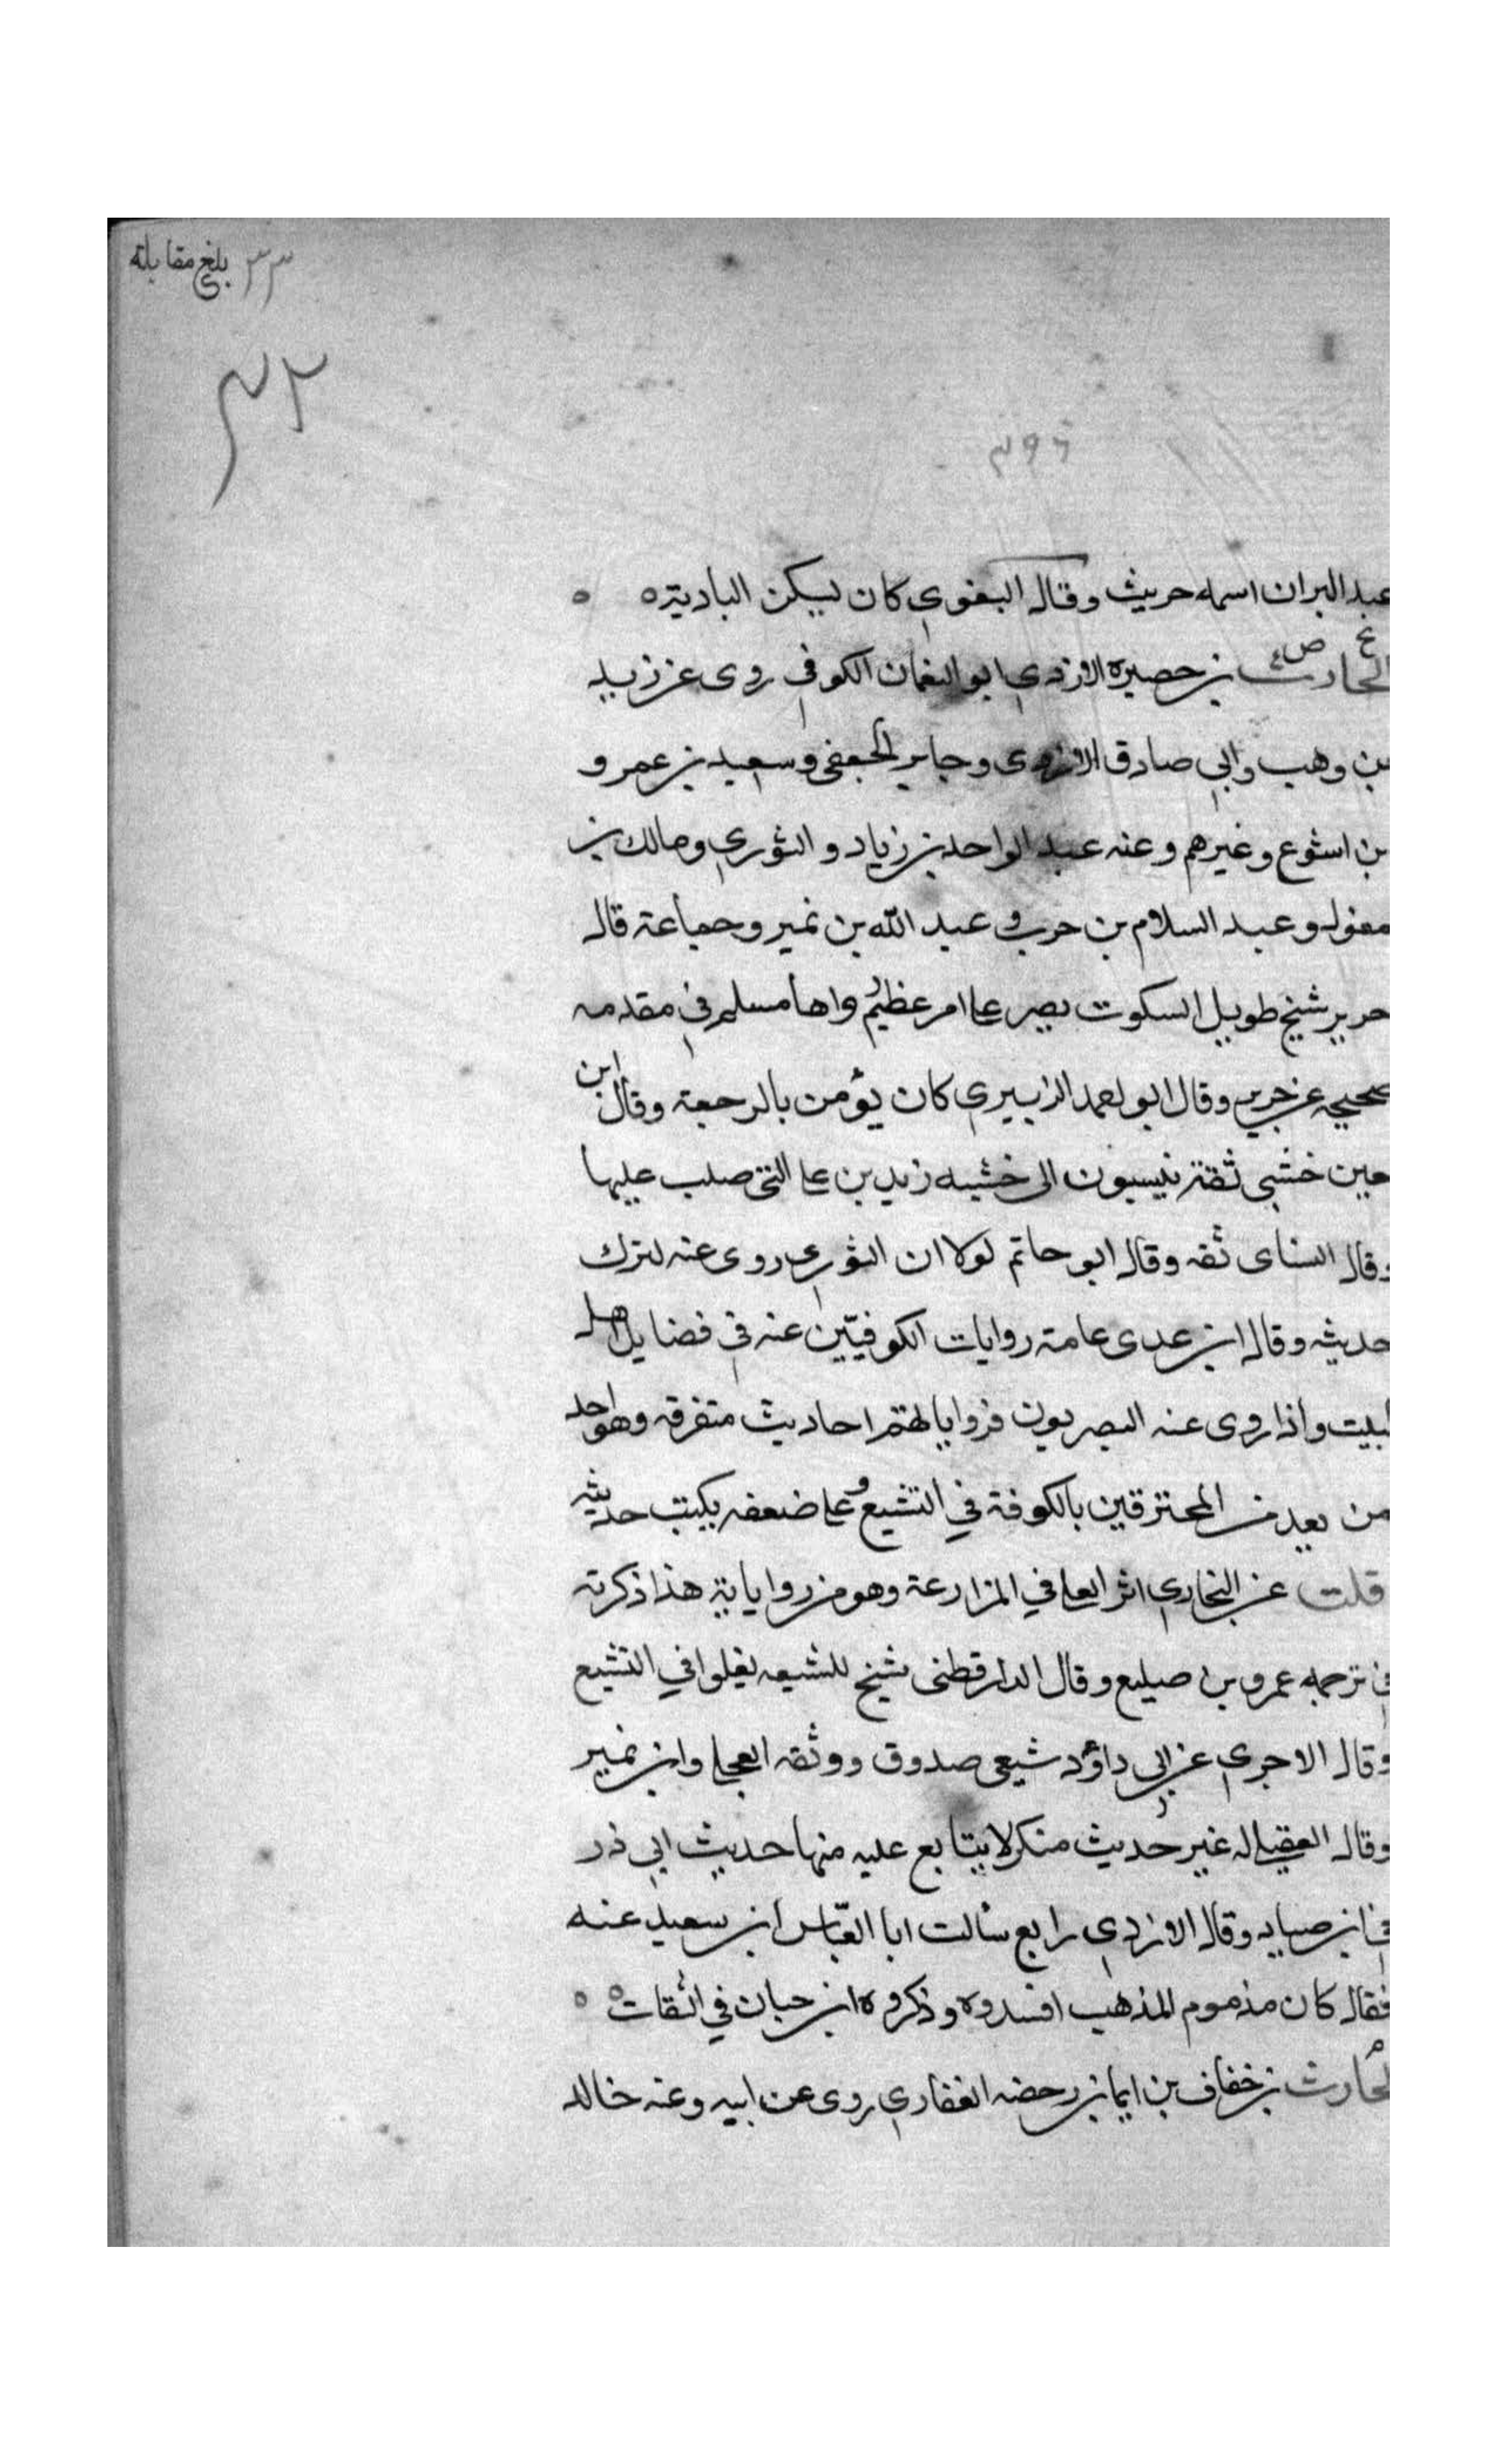 ٣٣ بلغ مقابلة
٣٢
٣٩٦
عبد البر ان اسمه حريث وقال البغوي كان يسكن البادية ٥ ٥
بخ ص ٤
الحارث بن حصيرة الازدي ابو النعمان الكوفي روى عن زيد
بن وهب وابي صادق الازدي وجابر الجعفي وسعيد بن عمرو
بن اشوع وغيرهم وعنه عبد الواحد بن زياد والثوري ومالك بن
مغول وعبد السلام بن حرب وعبد الله بن نمير وجماعة قال
جرير شيخ طويل السكوت يصر على امر عظيم رواها مسلم في مقدمه
صحيحه عن جرير وقال ابو احمد الزبيري كان يؤمن بالرجعة وقال ابن
معين خشبي ثقة ينسبون الى خشبه زيد بن علي التي صلب عليها
وقال النساى ثقه وقال ابو حاتم لولا ان الثوري روى عنه لترك
حديثه وقال ابن عدى عامة روايات الكوفيّين عنه في فضايل اهل
البيت واذا روى عنه البصريون فروايا لهتم احاديث متفرقه وهو احد
من يعد من المحترقين بالكوفة في التشيع وعلى ضعفه يكتب حديثه
قلت عن البخاري اثر العلي في المزارعة وهو من رواياية هذا ذكرته
في ترجمه عمرو بن صيليع وقال الدارقطنى شيخ للشيعه يغلوا في التشيع
وقال الاجري عن ابي داؤد شيعى صدوق ووثقه العجلي وابن نمير
وقال العقيلي له غير حديث منكر لا يتابع عليه منها حديث ابي ذر
في ابن صياد وقال الازدي رايع سألت ابا العبّاس ابن سعيد عنه
فقال كان مذموم المذهب افسدوه وذكروه ابن حبان في الثقات ٥ ٥
م
الحارث بن خفاف بن ايما بن رحضه الغفاري روى عن ابيه وعنه خالد